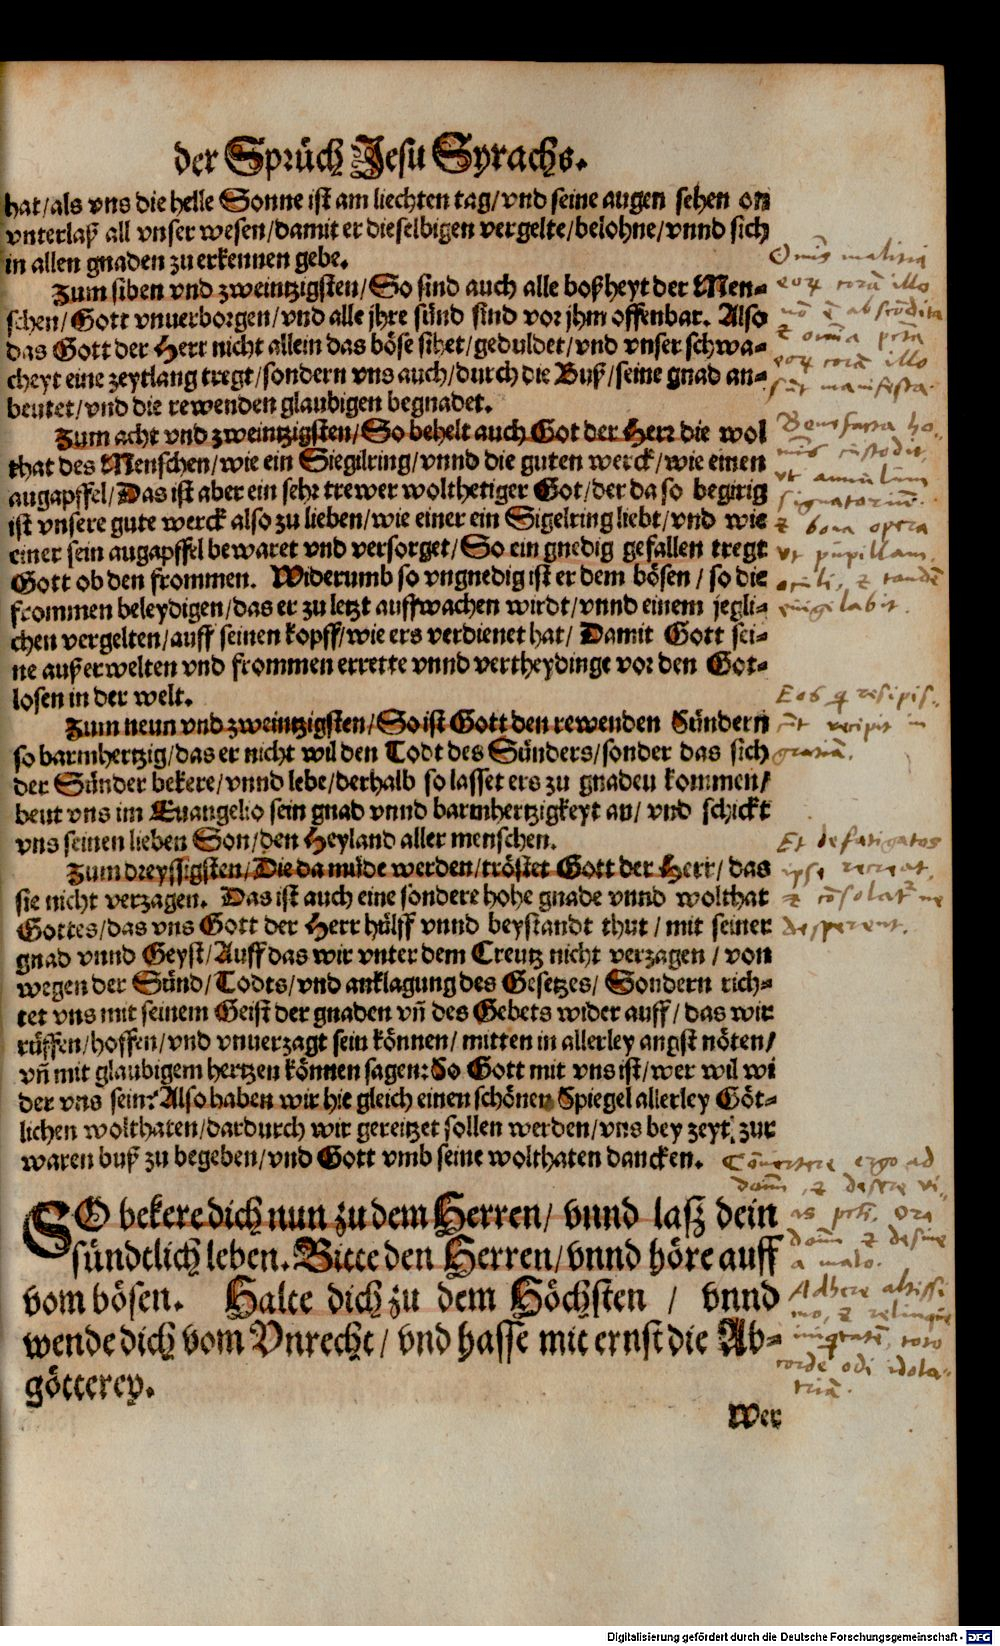 der Sprüch Jesu Syrachs.
hat/als vns die helle Sonne ist am liechten tag/vnd seine augen sehen on
vnterlaß all vnser wesen/damit er dieselbigen vergelte/belohne/vnnd sich
in allen gnaden zu erkennen gebe.
Zum siben vnd zweintzigsten/So sind auch alle boßheyt der Men-
schen/Gott vnuerborgen/vnd alle jhre sünd sind vor jhm offenbar. Also
das Gott der Herr nicht allein das böse sihet/geduldet/vnd vnser schwa-
cheyt eine zeytlang tregt/sondern vns auch/durch die Buß/seine gnad an-
beutet/vnd die rewenden glaubigen begnadet.
Zum acht vnd zweintzigsten/So behelt auch Got der Herr die wol
that des Menschen/wie ein Siegilring/vnnd die guten werck/wie einen
augapffel/Das ist aber ein sehr trewer wolthetiger Got/der da so begirig
ist vnsere gute werck also zu lieben/wie einer ein Sigelring liebt/vnd wie
einer sein augapffel bewaret vnd versorget/So ein gnedig gefallen tregt
Gott ob den frommen. Widerumb so vngnedig ist er dem bösen/so die
frommen beleydigen/das er zu letzt auffwachen wirdt/vnnd einem jegli-
chen vergelten/auff seinen kopff/wie ers verdienet hat/Damit Gott sei-
ne außerwelten vnd frommen errette vnnd vertheydinge vor den Got-
losen in der welt.
Zum neun vnd zweintzigsten/So ist Gott den rewenden Sündern
so barmhertzig/das er nicht wil den Todt des Sünders/sonder das sich
der Sünder bekere/vnnd lebe/derhalb so lasset ers zu gnaden kommen/
beut vns im Euangelio sein gnad vnnd barmhertzigkeyt an/vnd schickt
vns seinen lieben Son/den Heyland aller menschen.
Zum dreyssigsten/Die da müde werden/tröstet Gott der Herr/das
sie nicht verzagen. Das ist auch eine sondere hohe gnade vnnd wolthat
Gottes/das vns Gott der Herr hülff vnnd beystandt thut/mit seiner
gnad vnnd Geyst/Auff das wir vnter dem Creutz nicht verzagen/von
wegen der Sünd/Todts/vnd anklagung des Gesetzes/Sondern rich-
tet vns mit seinem Geist der gnaden vñ des Gebets wider auff/das wir
rüffen/hoffen/vnd vnuerzagt sein können/mitten in allerley angst nöten/
vñ mit glaubigem hertzen können sagen: So Gott mit vns ist/wer wil wi
der vns sein? Also haben wir hie gleich einen schönen Spiegel allerley Göt-
lichen wolthaten/dardurch wir gereitzet sollen werden/vns bey zeyt zur
waren buß zu begeben/vnd Gott vmb seine wolthaten dancken.
SO bekere dich nun zu dem Herren/vnnd lasz dein
sündtlich leben. Bitte den Herren/vnnd höre auff
vom bösen. Halte dich zu dem Höchsten/vnnd
wende dich vom Vnrecht/vnd hasse mit ernst die Ab-
götterey.
Wer
Omīs malitia
corā illo
nō ē abscōdita
et omīa pctā
corā illo
sūt manifesta.
Benefacta ho-
mīs custodit,
vt annulūm
signatoriū.
et bona opera
vt pupillam
oculi, et tandē
euigilabit.
Eos q resipis-
cūt recipit in
gratiā.
Et defatigatos
ipse recreat,
et cōsolatr ne
desperent.
Cōuertere ergo ad
domī, et desere
Ora
domī et desine
a malo.
Adhere altissi
mo, et relinque
toto
corde odi idola-
triā.
Digitalisierung gefördert durch die Deutsche Forschungsgemeinschaft - DFG